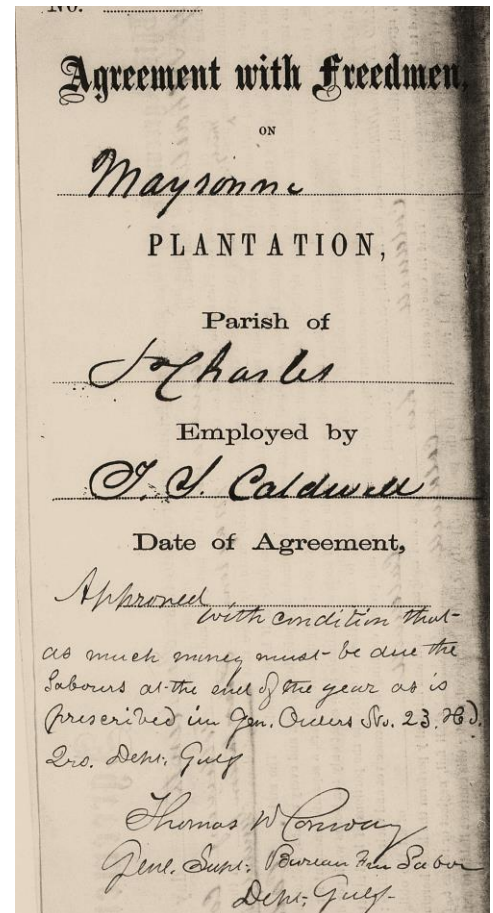 No.
Agreement with Freedmen,
ON
Mayronne
PLANTATION,
Parish of
St Charles
Employed by
T. S. Caldwell
Date of Agreement,
Approved with condition that
as much money must be due the
Labours at the end of the year as is
prescribed in Gen. Orders No. 23. Hd.
Qrs. Dept. Gulf
Thomas W Conway
Genl. Supt. Bureau Free Labor
Dept. Gulf.